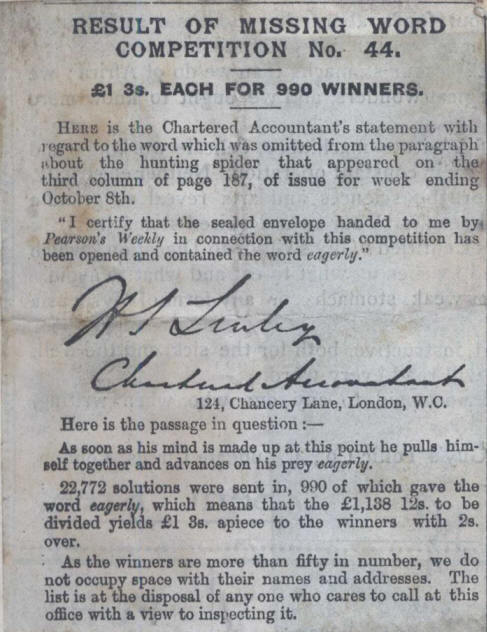 RESULT OF MISSING WORD
COMPETITION No. 44.
£1 3s. EACH FOR 990 WINNERS.
HERE is the Chartered Accountant's statement with
regard to the word which was omitted from the paragraph
about the hunting spider that appeared on the
third column of page 187, of issue for week ending
October 8th.
"I certify that the sealed envelope handed to me by
Pearson's Weekly in connection with this competition has
been opened and contained the word eagerly."
Chartered Accountant
124, Chancery Lane, London, W.C.
Here is the passage in question :—
As soon as his mind is made up at this point he pulls him-
self together and advances on his prey eagerly.
22,772 solutions were sent in, 990 of which gave the
word eagerly, which means that the £1,138 12s. to be
divided yields £1 3s. apiece to the winners with 2s.
over.
As the winners are more than fifty in number, we do
not occupy space with their names and addresses. The
list is at the disposal of any one who cares to call at this
office with a view to inspecting it.